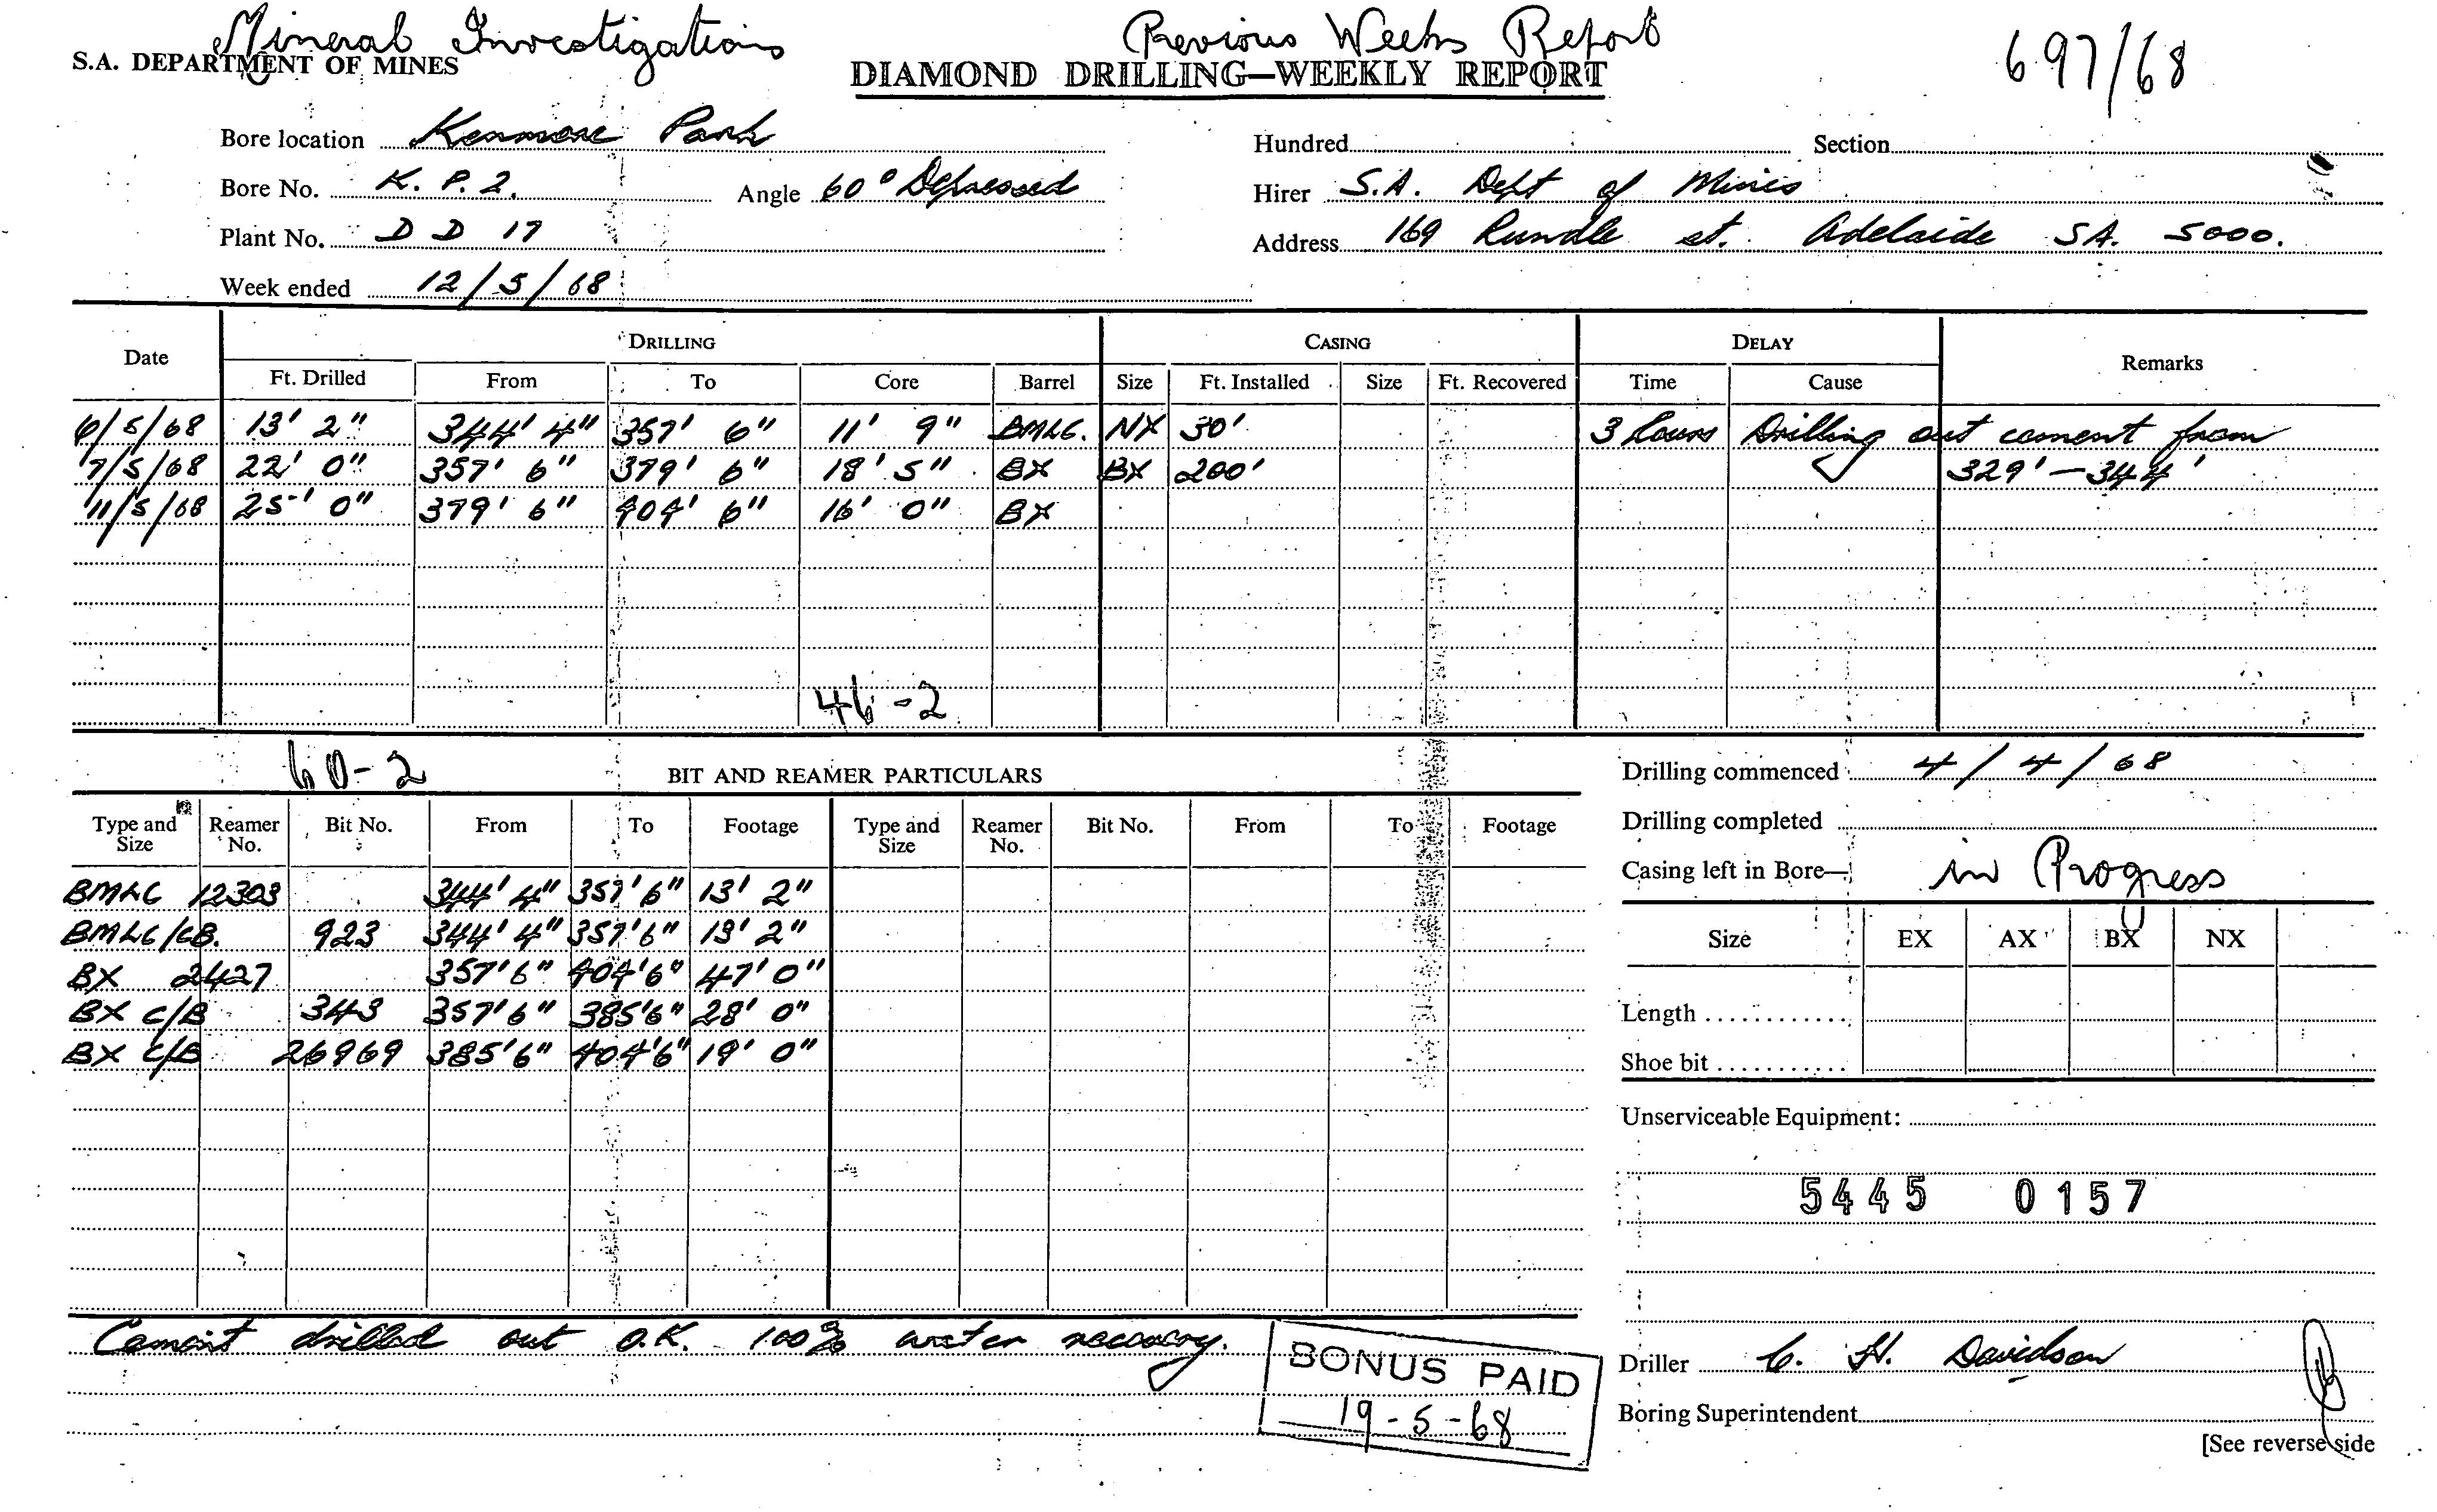 Mineral Investigations Previous Weeks Report 697/68
S.A. DEPARTMENT OF MINES
DIAMOND DRILLING—WEEKLY REPORT
Bore location Kenmore Park Hundred Section
Bore No. K. P. 2. Angle 60° Depressed Hirer S.A. Dept of Mines
Plant No. D D 17 Address 169 Rundle st. Adelaide SA. 5000.
Week ended 12/5/68
Date DRILLING CASING DELAY Remarks
Ft. Drilled From To Core Barrel Size Ft. Installed Size Ft. Recovered Time Cause
6/5/68 13' 2" 344' 4" 357' 6" 11' 9" BMLC. NX 30' 3 hours Drilling out cement from
7/5/68 22' 0" 357' 6" 379' 6" 18' 5" BX BX 200' 329' — 344'
11/5/68 25' 0" 379' 6" 404' 6" 16' 0" BX
46-2
60-2 BIT AND REAMER PARTICULARS
Drilling commenced 4/4/68
Type and Size Reamer No. Bit No. From To Footage Type and Size Reamer No. Bit No. From To Footage
Drilling completed
Casing left in Bore— in Progress
BMLC 12303 344' 4" 357' 6" 13' 2"
BMLC/CB. 923 344' 4" 357' 6" 13' 2"
Size EX AX BX NX
BX 2427 357' 6" 404' 6" 47' 0"
BX C/B 343 357' 6" 385' 6" 28' 0"
Length
BX C/B 26969 385' 6" 404' 6" 19' 0"
Shoe bit
Unserviceable Equipment:
5445 0157
Cement drilled out O.K. 100% water recovery.
BONUS PAID
19-5-68
Driller C. H. Davidson
Boring Superintendent
[See reverse side